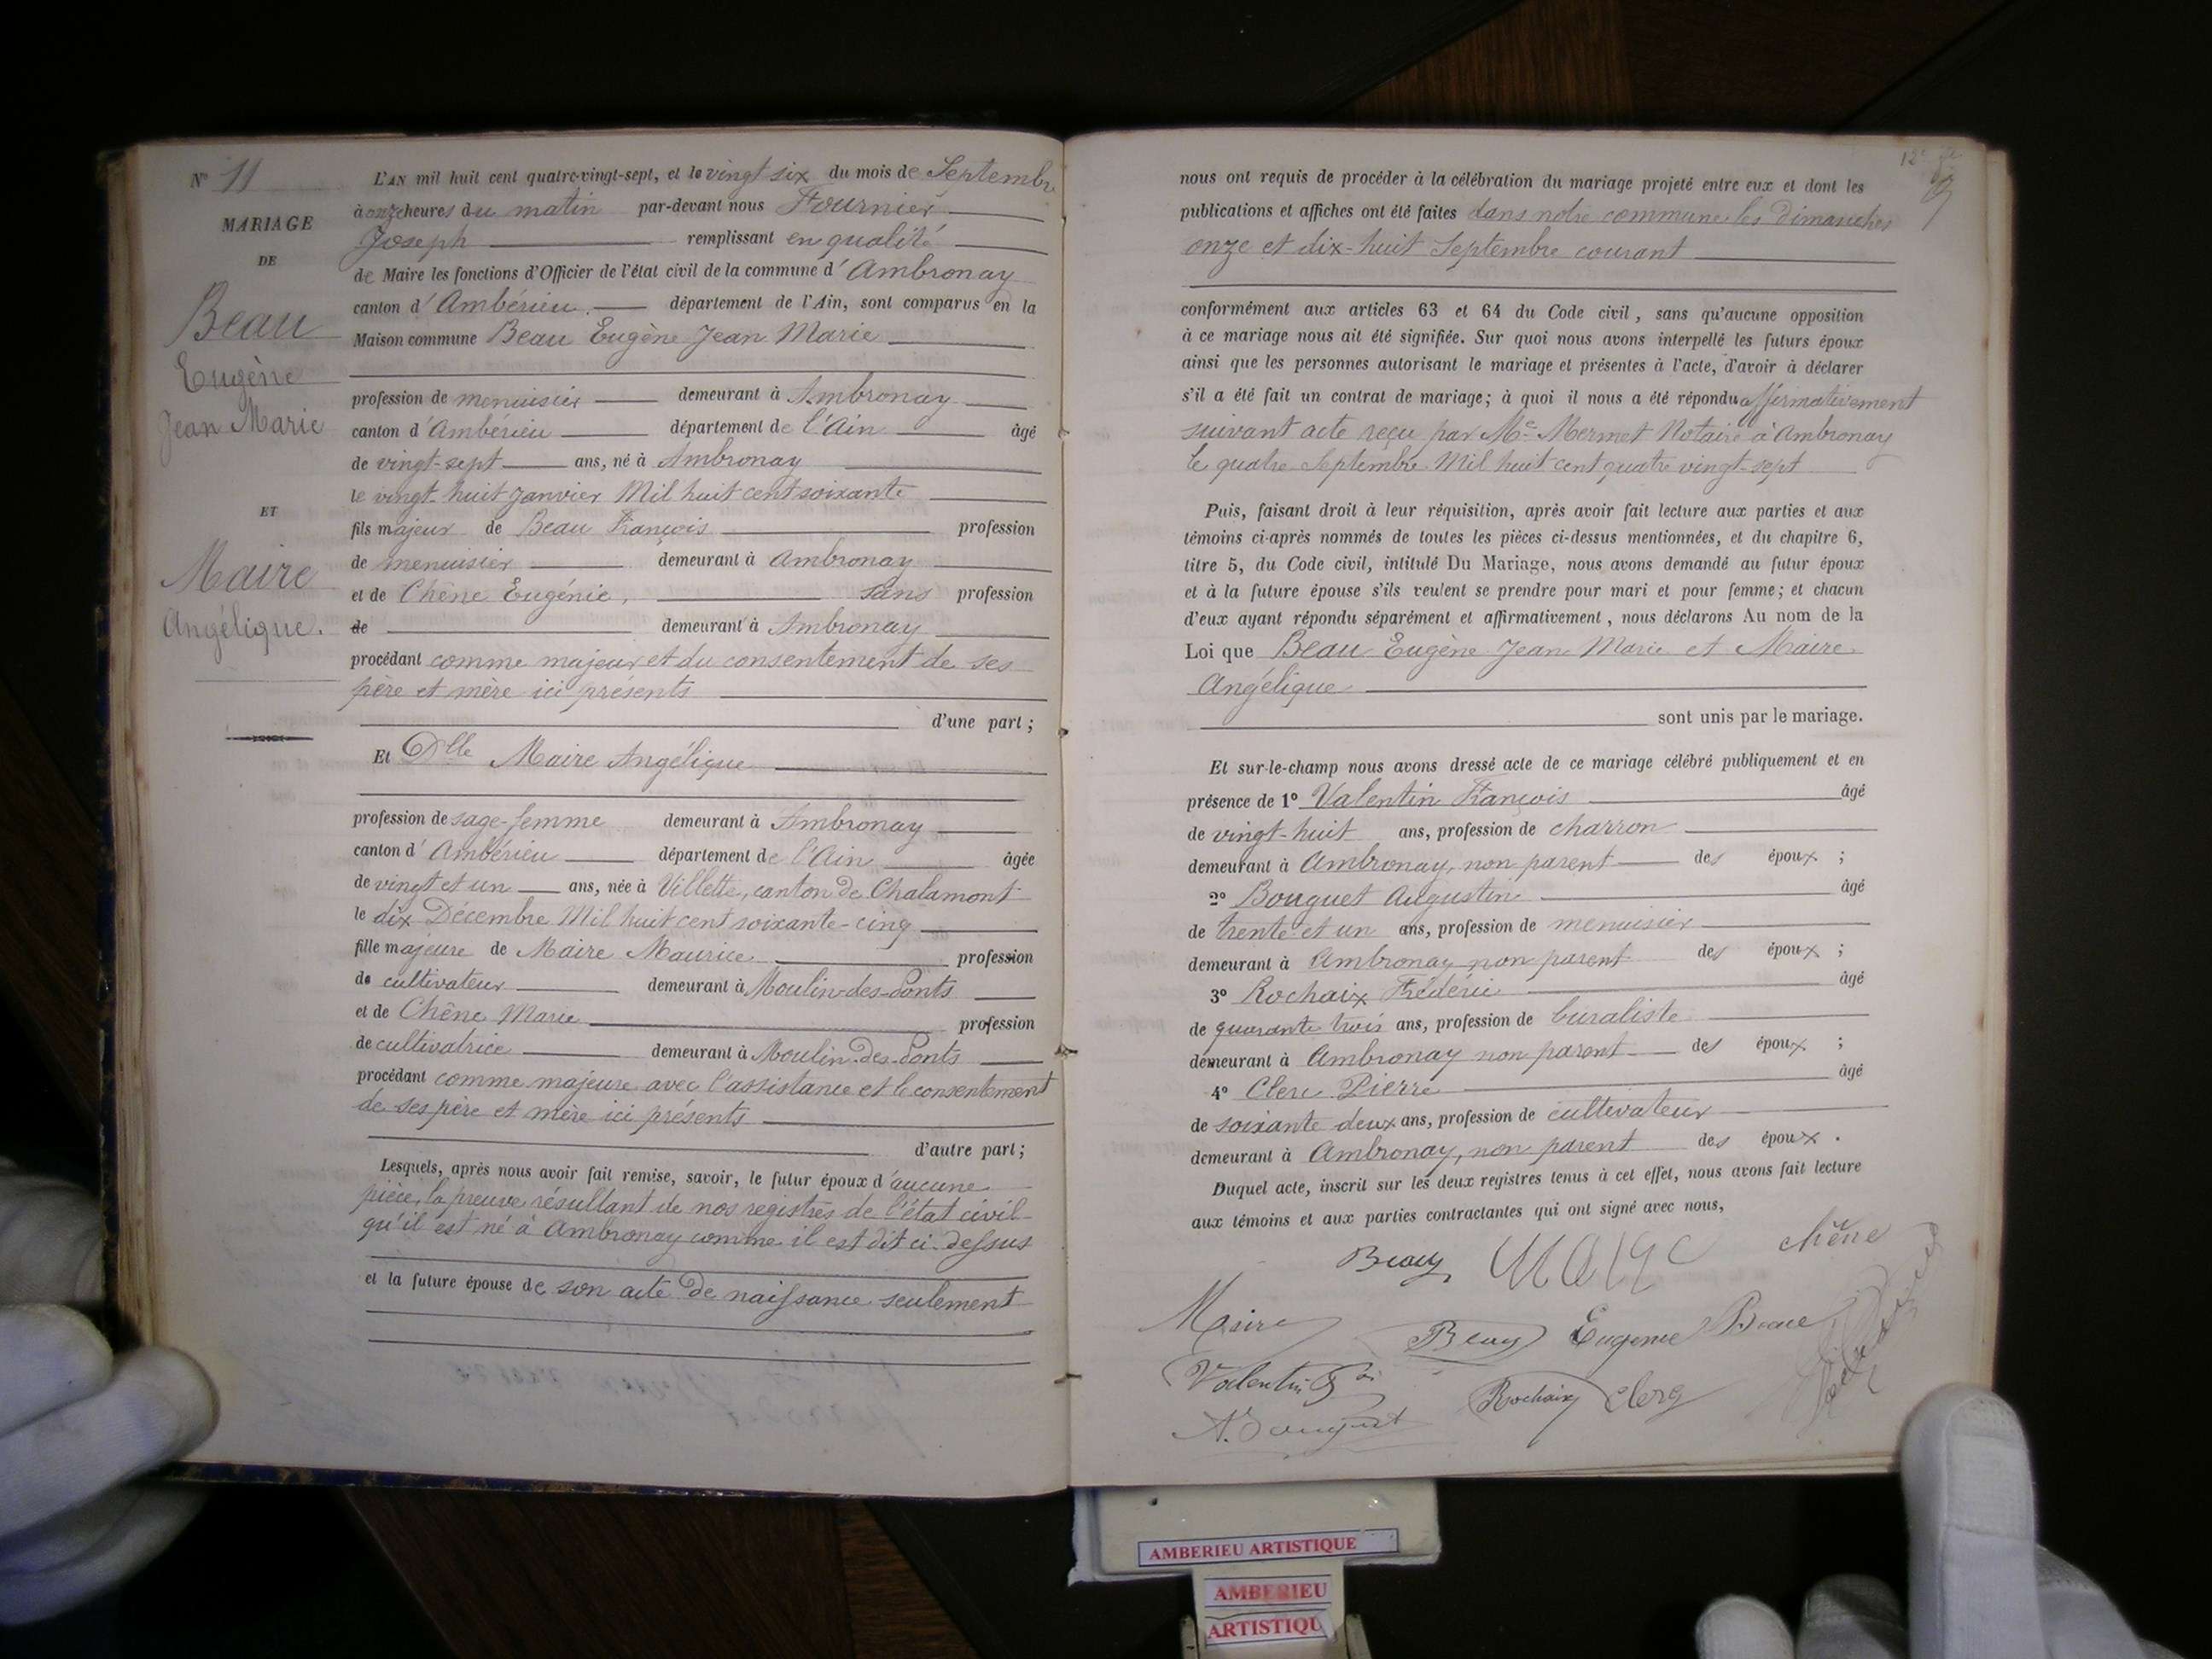 N° 11
MARIAGE
DE
Beau
Eugène
Jean Marie
ET
Maire
Angélique.
L'AN mil huit cent quatre-vingt-sept, et le vingt six du mois de Septembre
à onze heures du matin par-devant nous Fournier
Joseph remplissant en qualité
de Maire les fonctions d'Officier de l'état civil de la commune d'Ambronay
canton d'Ambérieu département de l'Ain, sont comparus en la
Maison commune Beau Eugène Jean Marie
profession de menuisier demeurant à Ambronay
canton d'Ambérieu département de l'Ain âgé
de vingt-sept ans, né à Ambronay
le vingt-huit Janvier Mil huit cent soixante
fils majeur de Beau François profession
de menuisier demeurant à Ambronay
et de Chêne Eugénie, Sans profession
de demeurant à Ambronay
procédant comme majeur et du consentement de ses
père et mère ici présents
d'une part;
Et Dlle Maire Angélique
profession de sage-femme demeurant à Ambronay
canton d'Ambérieu département de l'Ain âgée
de vingt et un ans, née à Villette, canton de Chalamont
le dix Décembre Mil huit cent soixante-cinq
fille majeure de Maire Maurice profession
de cultivateur demeurant à Moulin-des-Ponts
et de Chêne Marie profession
de cultivatrice demeurant à Moulin-des-Ponts
procédant comme majeure avec l'assistance et le consentement
de ses père et mère ici présents
d'autre part;
Lesquels, après nous avoir fait remise, savoir, le futur époux d'aucune
pièce, la preuve résultant de nos registres de l'état civil
qu'il est né à Ambronay comme il est dit ci-dessus
et la future épouse de son acte de naissance seulement
nous ont requis de procéder à la célébration du mariage projeté entre eux et dont les
publications et affiches ont été faites dans notre commune les Dimanches
onze et dix-huit Septembre courant
conformément aux articles 63 et 64 du Code civil, sans qu'aucune opposition
à ce mariage nous ait été signifiée. Sur quoi nous avons interpellé les futurs époux
ainsi que les personnes autorisant le mariage et présentes à l'acte, d'avoir à déclarer
s'il a été fait un contrat de mariage; à quoi il nous a été répondu affirmativement
suivant acte reçu par Me Mermet Notaire à Ambronay
le quatre Septembre Mil huit cent quatre vingt-sept
Puis, faisant droit à leur réquisition, après avoir fait lecture aux parties et aux
témoins ci-après nommés de toutes les pièces ci-dessus mentionnées, et du chapitre 6,
titre 5, du Code civil, intitulé Du Mariage, nous avons demandé au futur époux
et à la future épouse s'ils veulent se prendre pour mari et pour femme; et chacun
d'eux ayant répondu séparément et affirmativement, nous déclarons Au nom de la
Loi que Beau Eugène Jean Marie et Maire
Angélique
sont unis par le mariage.
Et sur-le-champ nous avons dressé acte de ce mariage célébré publiquement et en
présence de 1° Valentin François âgé
de vingt-huit ans, profession de charron
demeurant à Ambronay, non parent des époux;
2° Bouguet Augustin âgé
de trente et un ans, profession de menuisier
demeurant à Ambronay non parent des époux;
3° Rochaix Frédéric âgé
de quarante trois ans, profession de buraliste
demeurant à Ambronay non parent des époux;
4° Clerc Pierre âgé
de soixante deux ans, profession de cultivateur
demeurant à Ambronay, non parent des époux.
Duquel acte, inscrit sur les deux registres tenus à cet effet, nous avons fait lecture
aux témoins et aux parties contractantes qui ont signé avec nous,
Beau Maire chêne
Maire Beau Eugénie Beau
Valentin Fois Rochaix Clerc
A. Bouguet
AMBERIEU ARTISTIQUE
AMBERIEU
ARTISTIQU